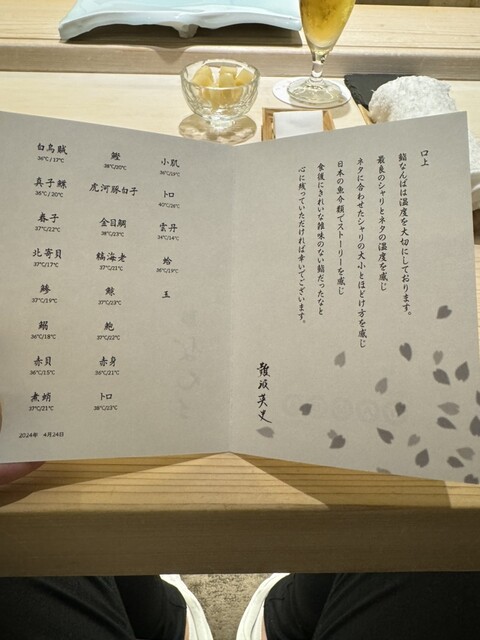 口上
鮨なんばは温度を大切にしております。
最良のシャリとネタの温度を感じ
ネタに合わせたシャリの大小とほどけ方を感じ
日本の魚介類でストーリーを感じ
食後にきれいな雑味のない鮨だったなと
心に残っていただければ幸いでございます。
難波英史
白烏賊
36℃/17℃
真子鰈
36℃/20℃
春子
37℃/22℃
北寄貝
37℃/17℃
鯵
37℃/19℃
鰯
36℃/18℃
赤貝
36℃/15℃
煮蛸
37℃/21℃
鰹
38℃/20℃
虎河豚白子
金目鯛
38℃/23℃
縞海老
37℃/21℃
37℃/23℃
鮑
37℃/22℃
赤身
36℃/21℃
トロ
38℃/23℃
小肌
36℃/19℃
トロ
40℃/26℃
雲丹
34℃/14℃
蛤
36℃/19℃
玉
2024年 4月24日